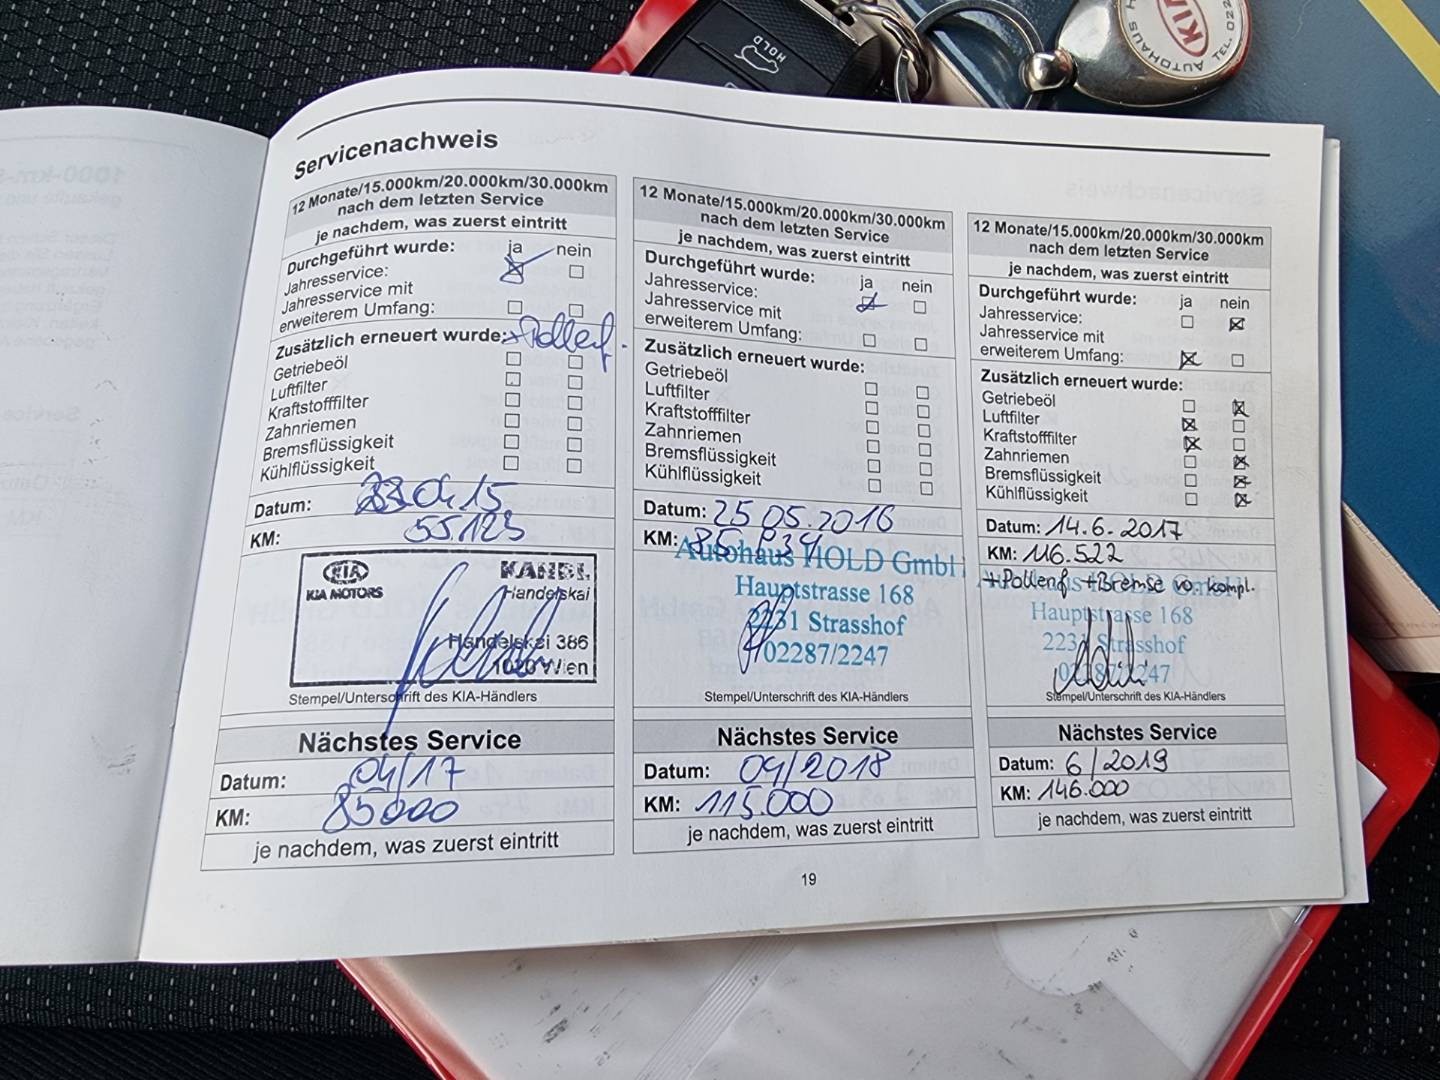 HOLD
KIA
AUTOHAUS H
TEL. 022
Servicenachweis
12 Monate/15.000km/20.000km/30.000km
nach dem letzten Service
je nachdem, was zuerst eintritt
Durchgeführt wurde: ja nein
Jahresservice:
Jahresservice mit
erweiterem Umfang:
Zusätzlich erneuert wurde: + Pollenf.
Getriebeöl
Luftfilter
Kraftstofffilter
Zahnriemen
Bremsflüssigkeit
Kühlflüssigkeit
Datum: 04.15
KM: 55.123
KIA
KIA MOTORS
KANDL
Handelskai
Handelskai 386
1020 Wien
Stempel/Unterschrift des KIA-Händlers
Nächstes Service
Datum: 04/17
KM: 85000
je nachdem, was zuerst eintritt
12 Monate/15.000km/20.000km/30.000km
nach dem letzten Service
je nachdem, was zuerst eintritt
Durchgeführt wurde: ja nein
Jahresservice:
Jahresservice mit
erweiterem Umfang:
Zusätzlich erneuert wurde:
Getriebeöl
Luftfilter
Kraftstofffilter
Zahnriemen
Bremsflüssigkeit
Kühlflüssigkeit
Datum: 25.05.2016
KM: 85.834
Autohaus HOLD GmbH
Hauptstrasse 168
2231 Strasshof
02287/2247
Stempel/Unterschrift des KIA-Händlers
Nächstes Service
Datum: 04/2018
KM: 115.000
je nachdem, was zuerst eintritt
12 Monate/15.000km/20.000km/30.000km
nach dem letzten Service
je nachdem, was zuerst eintritt
Durchgeführt wurde: ja nein
Jahresservice:
Jahresservice mit
erweiterem Umfang:
Zusätzlich erneuert wurde:
Getriebeöl
Luftfilter
Kraftstofffilter
Zahnriemen
Bremsflüssigkeit
Kühlflüssigkeit
Datum: 14.6.2017
KM: 116.522
+Pollenf +Bremse vo kompl.
Autohaus HOLD GmbH
Hauptstrasse 168
2231 Strasshof
02287/2247
Stempel/Unterschrift des KIA-Händlers
Nächstes Service
Datum: 6/2019
KM: 146.000
je nachdem, was zuerst eintritt
19